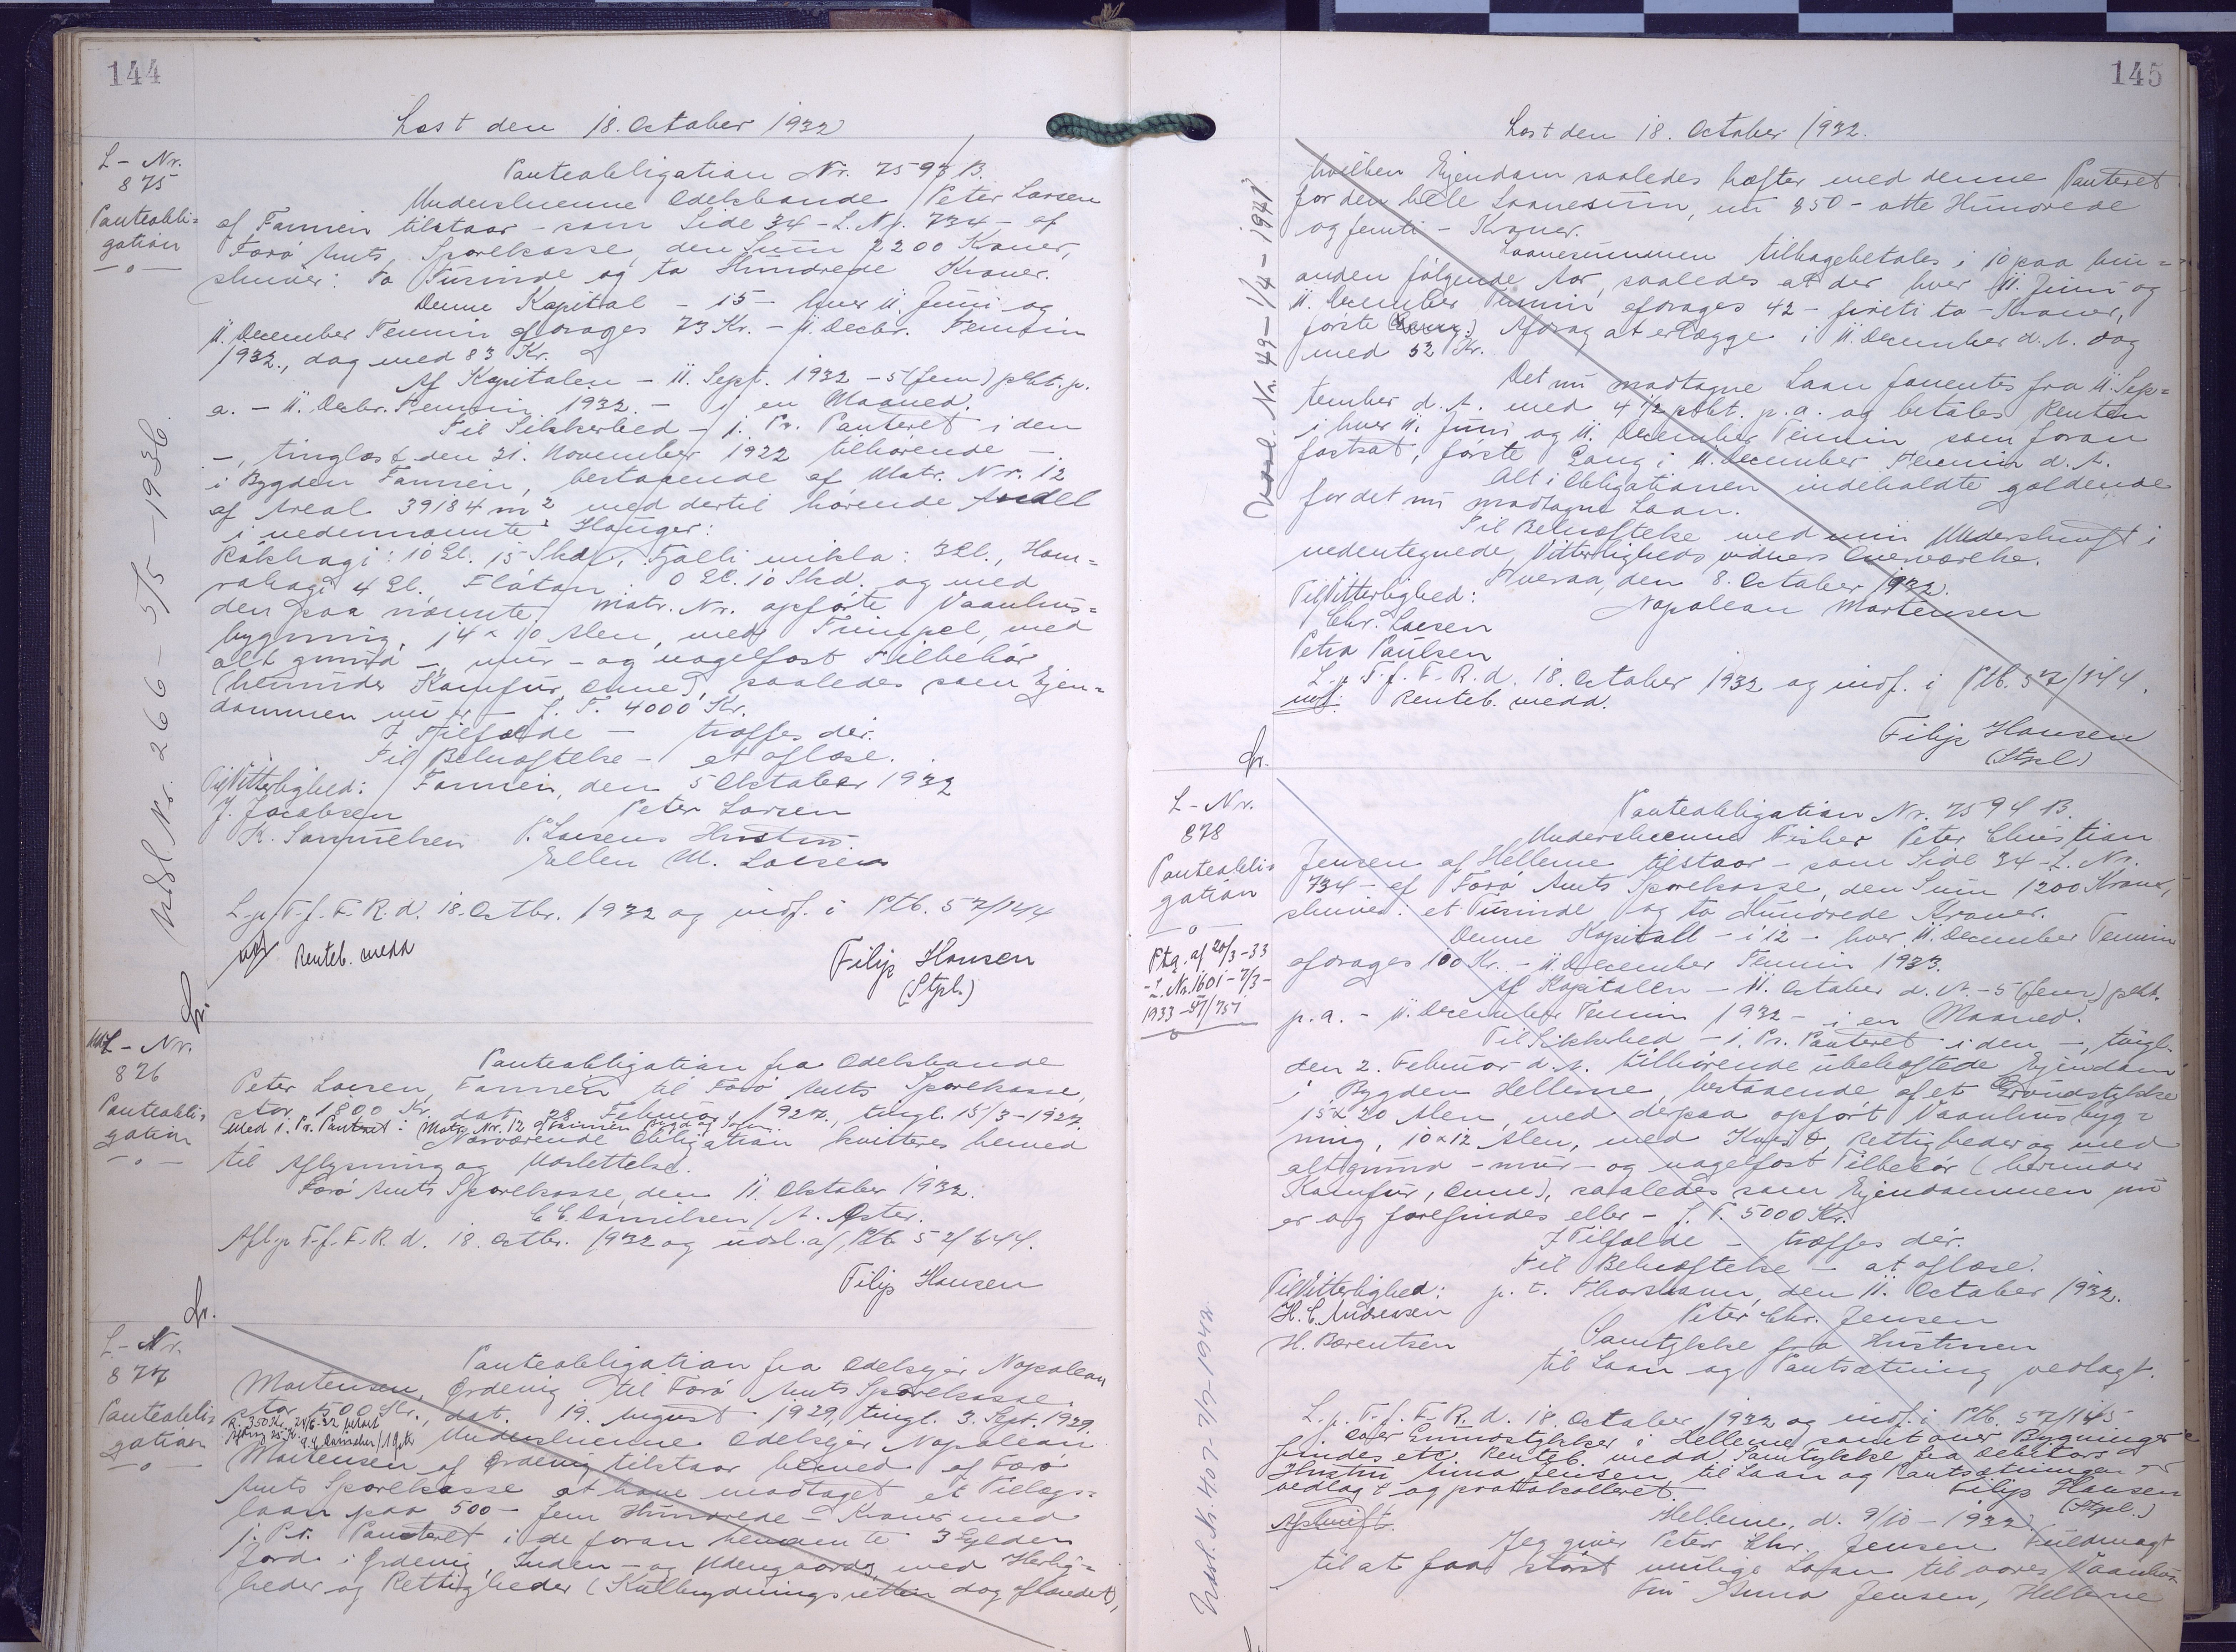 144
Læst den 18. October 1932
L-Nr.
875
Panteobli=
gation
Panteobligation Nr. 7593 B.
Underskrevne Odelsbonde Peter Larsen
af Famien tilstaar - som Side 34 - L. Nr. 734 - af
Færø Amts Sparekasse, den Sum 2200 Kroner,
skriver: to Tusinde og to Hundrede Kroner.
Denne Kapital - 15 - hver 11. Juni og
11. December Termin afdrages 73 Kr. - 11. Decbr. Termin
1932., dog med 83 Kr.
Af Kapitalen - 11. Sept. 1932 - 5 (fem) pCt. p.
a. - 11. Decbr. Termin 1932. - i en Maaned.
Til Sikkerhed - 1. Pr. Panteret i den
-, tinglæst den 21. November 1922 tilhørende -
i Bygden Famien, bestaaende af Matr. Nr. 12
af Areal 39184 m² med dertil hørende Andel
i nedennævnte Hauger:
10 Gl. 15 Skd., Fjalli mikla: 3 Gl., Ham=
rahagi 4 Gl., Fløtan 0 Gl. 10 Skd. og med
den paa nævnte Matr. Nr. opførte Vaanhus=
bygning, 14 x 10 Alen, med Tilbehør, med
alt grund -, mur - og nagelfast Tilbehør
(herunder Komfur, Ovne), saaledes som Ejen=
dommen nu er - f. T. 4000 Kr.
I Tilfælde - træffes der.
Til Bekræftelse - at oplæse.
Til Vitterlighed: Famien, den 5 Oktober 1932
J. Jacobsen Peter Larsen
K. Samuelsen P. Larsens Hustru
Ellen M. Larsen
L. p. T. f. F. R. d. 18. Octbr. 1932 og indf. i Ptb. 57/144
Renteb. medd
Filip Hansen
(Stpl.)
Udsl. Nr. 266 - 5/5 - 1936.
L-Nr.
876
Panteobli=
gation
Panteobligation fra Odelsbonde
Peter Larsen, Famien til Færø Amts Sparekasse,
stor 1800 Kr. dat. 28. Februar 1927, tingl. 15/3-1927.
med 1. Pr. Panteret i Matr. Nr. 12 af Famien Bygd og Sogn.
Nærværende Obligation kvitteres hermed
til Aflysning og Udslettelse.
Færø Amts Sparekasse, den 11. Oktober 1932.
C. C. Danielsen / A. Øster.
Afl. p. T. f. F. R. d. 18. Octbr. 1932 og udsl. af Ptb. 52/644.
Filip Hansen
L-Nr.
877
Panteobli=
gation
Panteobligation fra Odelsejer Napolean
Mortensen, Ørdevig til Færø Amts Sparekasse,
stor 500 Kr., dat. 19. August 1929, tingl. 3. Sept. 1929.
Underskrevne Odelsejer Napolean
Mortensen af Ørdevig tilstaar hermed af Færø
Amts Sparekasse at have modtaget et Tillægs=
laan paa 500 - fem Hundrede - Kroner med
1. Pr. Panteret i de foran benævnte 3 Gylden
Jord i Ørdevig, Inden- og Udengaards, med Herlig=
heder og Rettigheder (Kulbrydningsretten dog afhændet),
145
Læst den 18. October 1932.
hvilken Ejendom saaledes hæfter med denne Panteret
for den hele Laanesum, nu 850 - otte Hundrede
og femti - Kroner.
Laanesummen tilbagebetales i 10 paa hin=
anden følgende Aar, saaledes at der hver 11. Juni og
11. December Termin afdrages 42 - firti to - Kroner,
første Gang) Afdrag at erlægge i 11. December d. A. dog
med 52 Kr.
Det nu modtagne Laan forrentes fra 11. Sep=
tember d. A. med 4 1/2 pCt. p. a. og betales Renten
i hver 11. Juni og 11. December Termin som foran
fastsat, første Gang i 11. December Termin d. A.
Alt i Obligationen indeholdte gældende
for det nu modtagne Laan.
Til Bekræftelse med min Underskrift i
nedentegnede Vitterlighedsvidners Overværelse.
Tveraa, den 8. October 1932.
Til Vitterlighed: Napolean Mortensen
Chr. Larsen
Petra Poulsen
L. p. T. f. F. R. d. 18. October 1932 og indf. i Ptb. 57/144.
Renteb. medd.
Filip Hansen
(Stpl.)
Udsl. Nr. 49 - 1/4 - 1941
L-Nr.
878
Panteobli=
gation
Ptg. af 20/3-33
- L. Nr. 1601 - 7/3 -
1933 - 57/751
Panteobligation Nr. 7594 B.
Underskrevne Fisker Peter Christian
Jensen af Hellerne tilstaar - som Side 34 - L. Nr.
734 - af Færø Amts Sparekasse, den Sum 1200 Kroner,
skriver: et Tusinde og to Hundrede Kroner.
Denne Kapital - i 12 - hver 11. December Termin
afdrages 100 Kr. - 11. December Termin 1933.
Af Kapitalen - 11. October d. A. - 5 (fem) pCt.
p. a. - 11. December Termin 1932 - i en Maaned.
Til Sikkerhed - 1. Pr. Panteret i den -, tingl.
den 2. Februar d. A. tilhørende ubehæftede Ejendom
i Bygden Hellerne, bestaaende af et Grundstykke
15 x 20 Alen, med derpaa opført Vaanhusbyg=
ning, 10 x 12 Alen, med Rettigheder og med
alt grund - mur - og nagelfast Tilbehør (herunder
Komfur, Ovne), saaledes som Ejendommen nu
er og forefindes eller - f. T. 5000 Kr.
I Tilfælde - træffes der.
Til Bekræftelse - at oplæse.
Til Vitterlighed: p. t. Thorshavn, den 11. October 1932.
H. C. Andreasen Peter Chr. Jensen
H. Bærentsen Samtykke fra Hustruen
til Laan og Pantsætning vedlagt.
L. p. T. f. F. R. d. 18. October 1932 og indf. i Ptb. 57/145
Grundstykker i Hellerne samt over Bygninger
findes etc. Renteb. medd. Samtykke fra Debitors
Hustru Anna Jensen til Laan og Pantsætningen er
vedlagt og protokolleret. Filip Hansen
(Stpl.)
Afskrift. Hellerne, d. 9/10 - 1932
Jeg giver Peter Chr. Jensen Fuldmagt
til at faa størst mulige Laan til vores Vaanhus
Fru Anna Jensen, Hellerne
Udsl. Nr. 407 - 7/7 - 1942